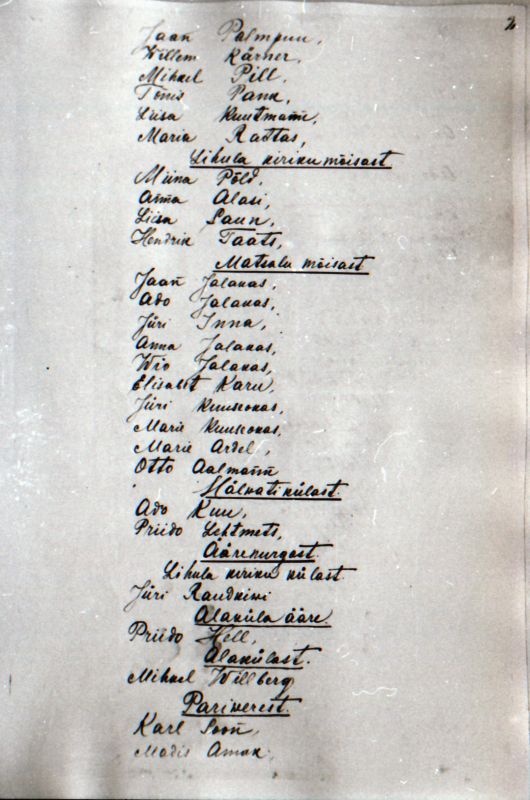 2
Jaan̄ Palmpuu,
Willem Kärner,
Mihkel Pill,
Tõnis Pank,
Liisa Kuutman̄,
Maria Rattas,
Lihula kiriku mõisast
Miina Põld,
An̄a Alasi,
Liisa Saun,
Hendrik Taats,
Matsalu mõisast
Jaan̄ Jalakas,
Ado Jalakas,
Jüri Inna,
Anna Jalakas,
Wio Jalakas,
Elisabet Karu,
Jüri Kuuskokas,
Marie Kuuskokas,
Marie Ardel,
Otto Aalman̄
külast.
Ado Kuu,
Priido Lehtmets,
Äärekurgast.
Lihula kiriku külast.
Jüri Raudkiwi
Alaküla ääre.
Priido Hell,
Alakülast.
Mihkel Willberg
Pariwerest.
Karl Soon̄,
Madis Amak,